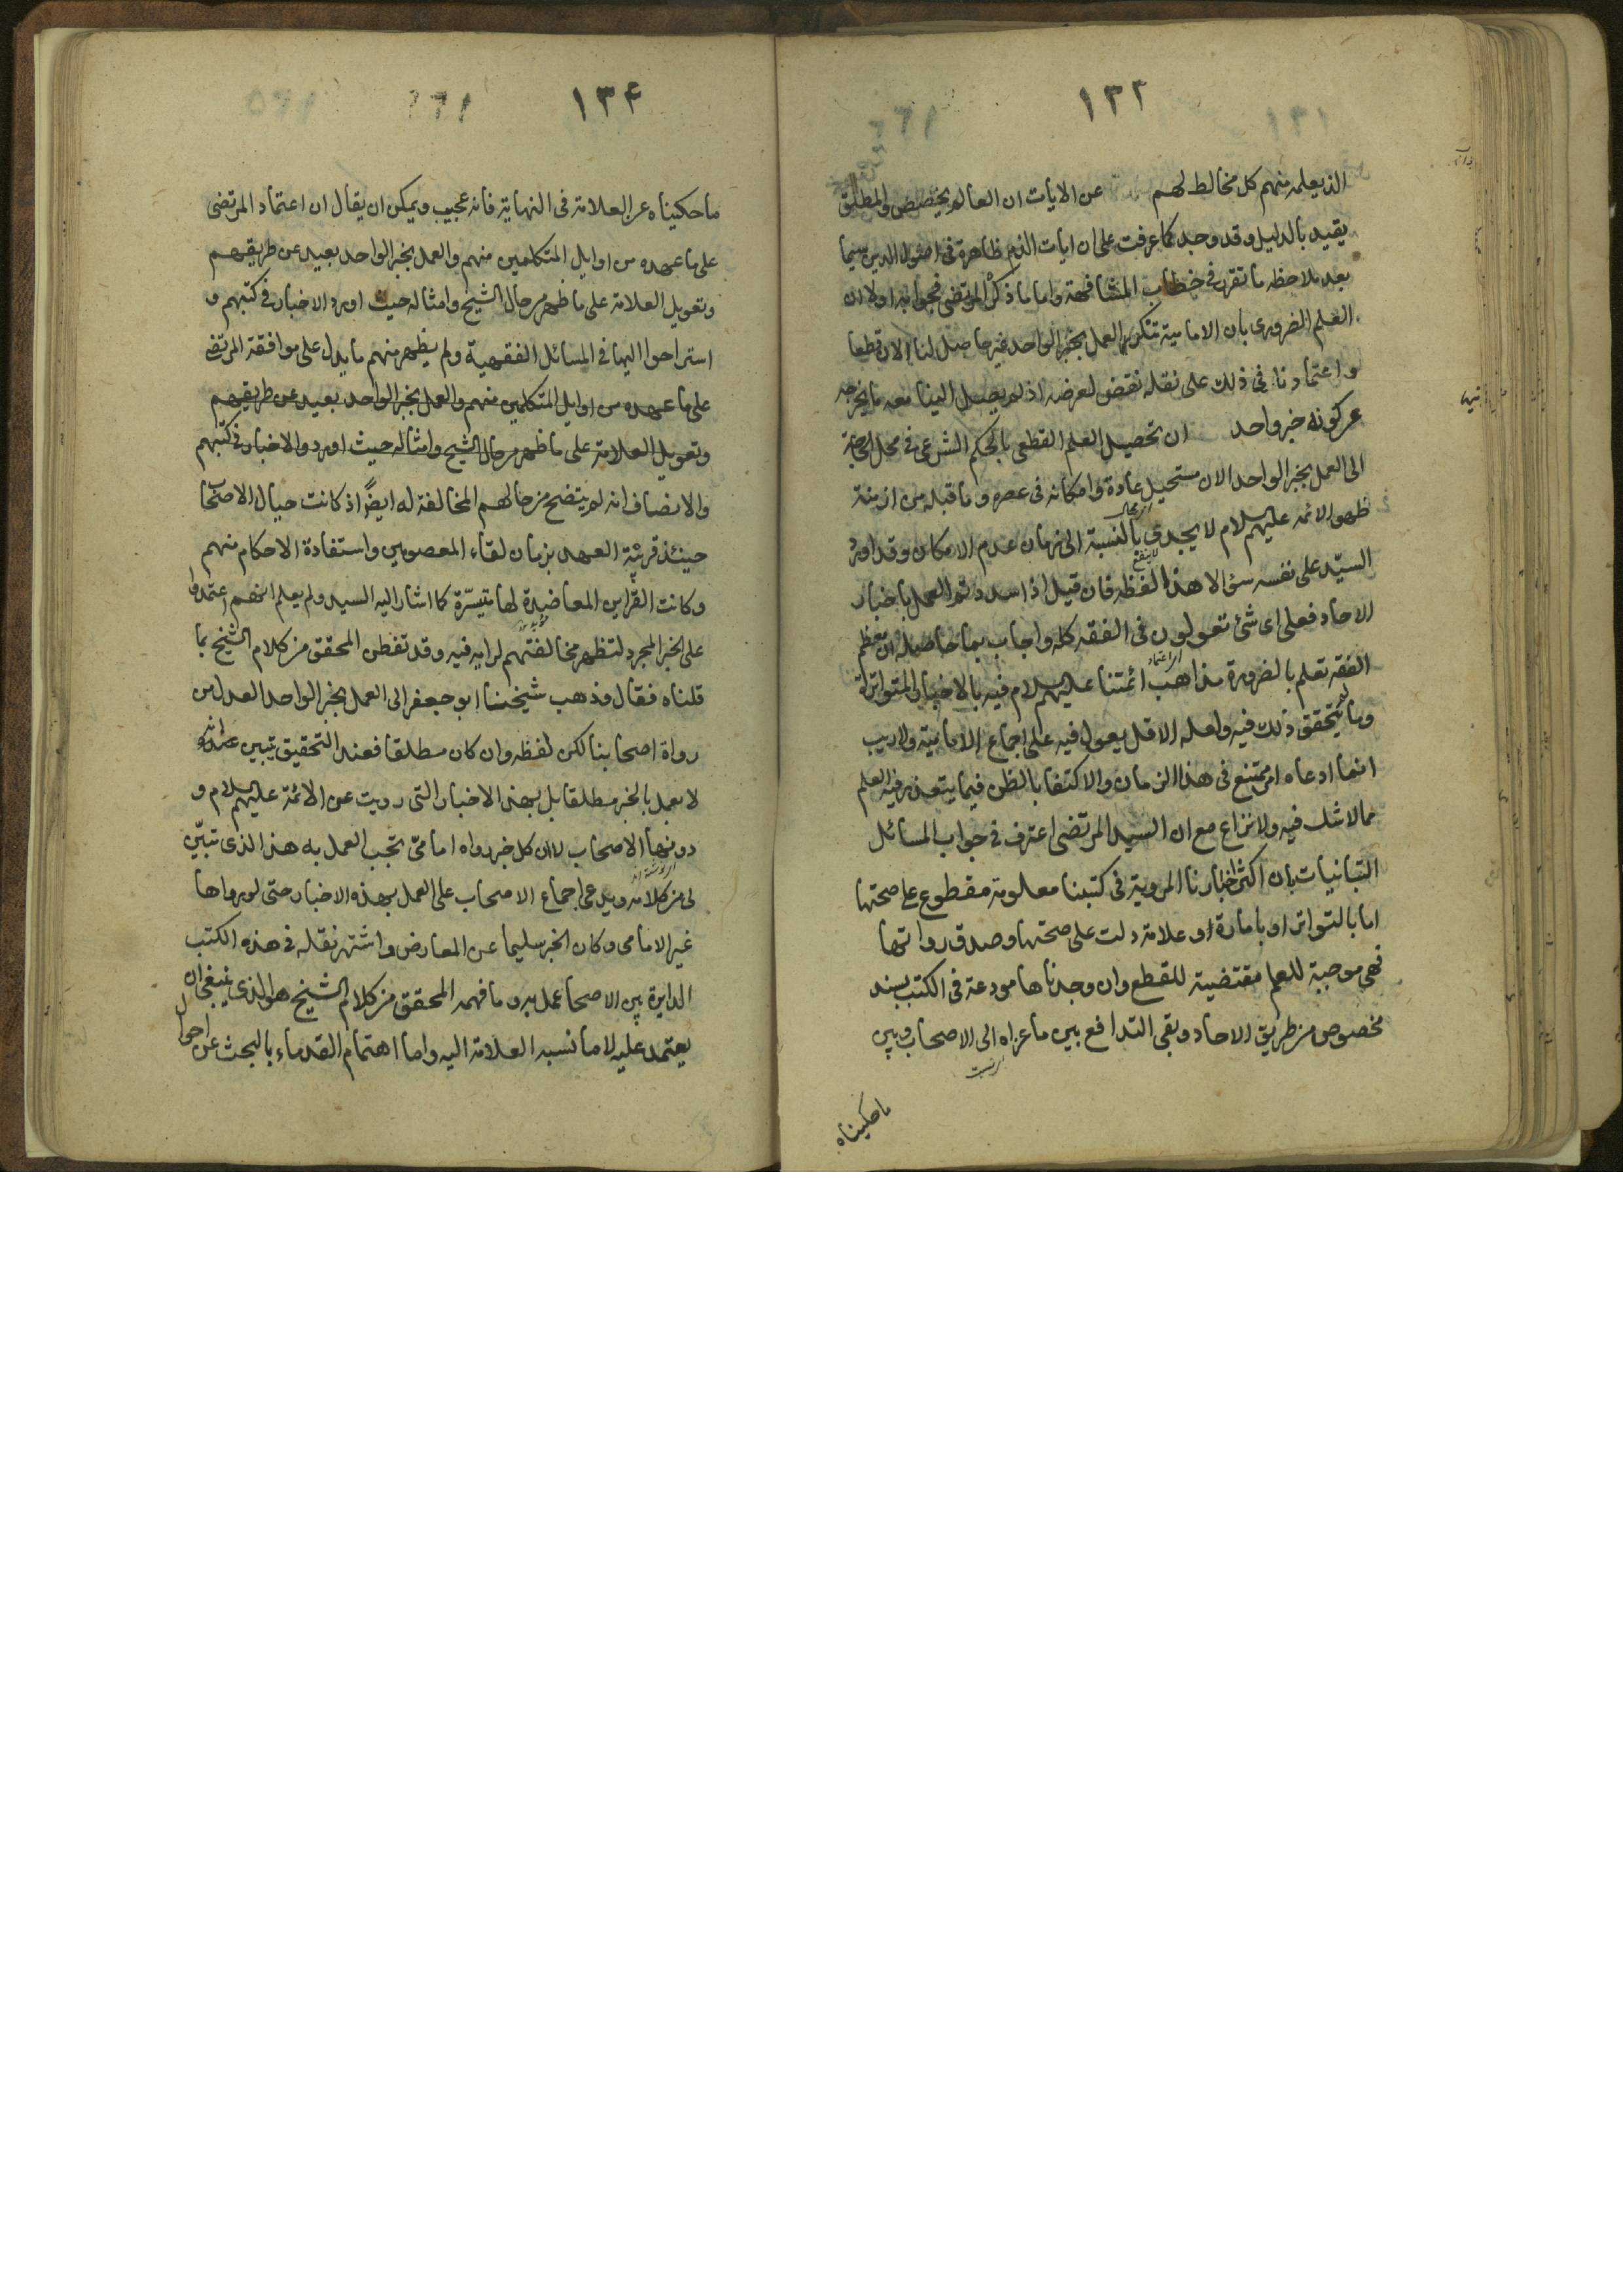 ١٣٣
الذي يعلمه منهم كل مخالط لهم عن الايات ان العام يخصص والمطلق
يقيد بالدليل وقد وجد كما عرفت على ان ايات الذم ظاهرة في اصول الدين سيما
بعد ملاحظه ما تقرر في خطاب المشافهة واما ما ذكره المرتضى فجوابه اولا ان
العلم الضروري بان الامامية تنكر العمل بخبر الواحد غير حاصل لنا الان قطعا
واعتمادنا في ذلك على نقله نقض لغرضه اذ لم يصل الينا معه ما يخرجه
عن كونه خبر واحد ان تحصيل العلم القطعي بالحكم الشرعي في محل الحاجة
الى العمل بخبر الواحد الان مستحيل عادة وامكانه في عصره وما قبله من ازمنة
ظهور الائمه عليهم السلام لا يجدي بالنسبة الى زمان عدم الامكان وقد اورد
السيّد على نفسه سؤالا هذا لفظه فان قيل اذا سددتم العمل باخبار
الاحاد فعلى اى شئ تعولون في الفقه كله واجاب بما حاصله ان معظم
الفقه تعلم بالضرورة مذاهب ائمتنا عليهم السلام فيه بالاخبار المتواترة
وما لم يتحقق ذلك فيه ولعله الاقل يعول فيه على اجماع الامامية ولا ريب
ان ما ادعاه امر ممتنع في هذا الزمان والاكتفا بالظن فيما يتعذر فيه العلم
مما لا شك فيه ولا نزاع مع ان السيد المرتضى اعترف في جواب المسائل
التبانيات بان اكثر اخبارنا المروية في كتبنا معلومة مقطوع على صحتها
اما بالتواتر او بامارة او علامة دلت على صحتها وصدق رواتها
فهي موجبة للعلم مقتضية للقطع وان وجدناها مودعة في الكتب بسند
مخصوص من طريق الاحاد وبقى التدافع بين ما عزاه الى الاصحاب وبين
ما حكيناه
١٣۴
ما حكيناه عن العلامة في النهاية فانه عجيب ويمكن ان يقال ان اعتماد المرتضى
على ما عهده من اوايل المتكلمين منهم والعمل بخبر الواحد بعيد عن طريقهم
وتعويل العلامة على ما ظهر من حال الشيخ وامثاله حيث اوردوا الاخبار في كتبهم و
استراحوا اليها في المسائل الفقهية ولم يظهر منهم ما يدل على موافقة المرتضى
على ما عهده من اوايل المتكلمين منهم والعمل بخبر الواحد بعيد عن طريقهم
وتعويل العلامة على ما ظهر من حال الشيخ وامثاله حيث اوردوا الاخبار في كتبهم
والانصاف انه لم يتضح من حالهم المخالفة له ايضًا اذ كانت حيال الاصحاب
حينئذ قريبة العهد بزمان لقاء المعصومين واستفادة الاحكام منهم
وكانت القراين المعاضدة لها متيسّرة كما اشار اليه السيد ولم يعلم انهم اعتمدوا
على الخبر المجرد لتظهر مخالفتهم لرايه فيه وقد تفطن المحقق من كلام الشيخ بما
قلناه فقال وذهب شيخنا ابو جعفر الى العمل بخبر الواحد العدل من
رواة اصحابنا لكن لفظه وان كان مطلقا فعند التحقيق تبين انه
لا يعمل بالخبر مطلقا بل بهذه الاخبار التى رويت عن الائمة عليهم السلام و
دونها الاصحاب لا ان كل خبر رواه امامىّ يجب العمل به هذا الذي تبيّن
لى من كلامه ويدعى اجماع الاصحاب على العمل بهذه الاخبار حتى لو رواها
غير الامامى وكان الخبر سليما عن المعارض واشتهر نقله في هذه الكتب
الدايرة بين الاصحاب عمل به وما فهمه المحقق من كلام الشيخ هو الذي ينبغي ان
يعتمد عليه لا ما نسبه العلامة اليه واما اهتمام القدماء بالبحث عن احوال